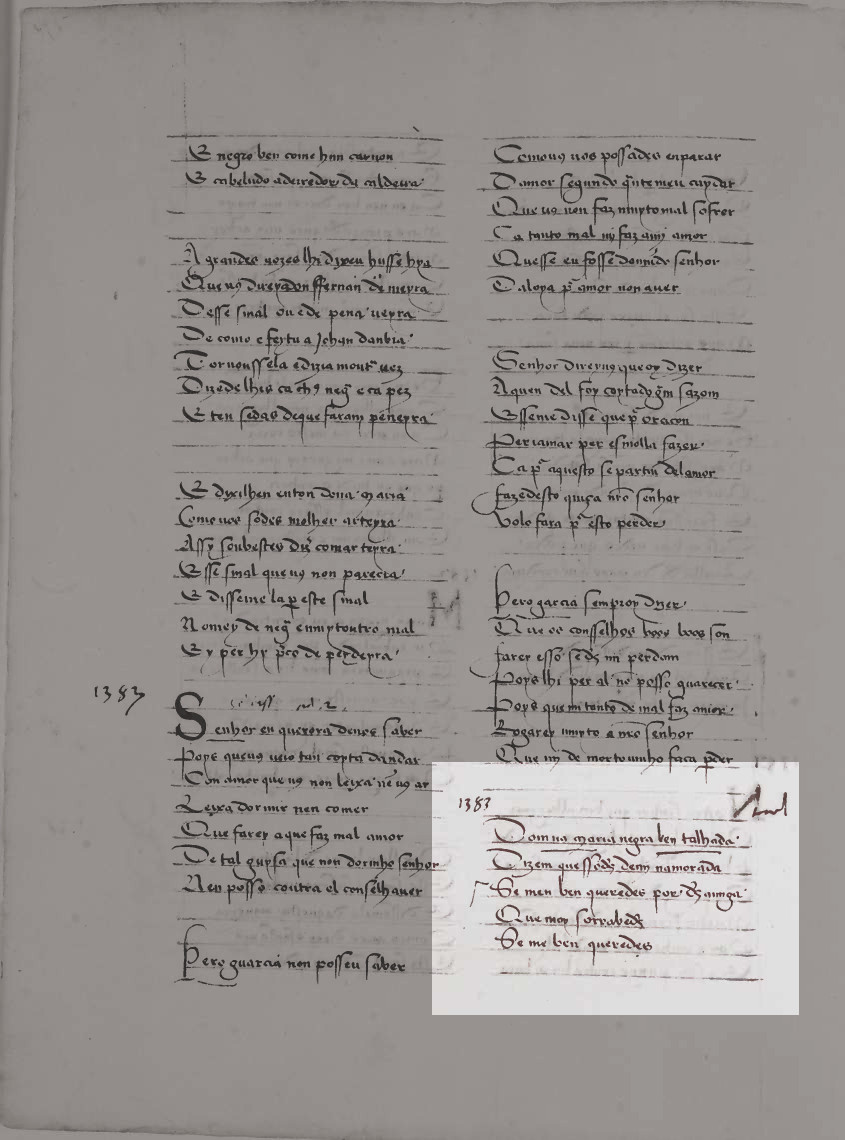 E negro ben come hun caruon
E cabeludo a derredor da caldeira
A grandes uozes lhi dixeu hu sse hya
Que uus direy a don ffernan de meyra
Desse sinal ou é de pena ueyra
De como e feytu a Johan danbia
Tornousela e dizia
E ten sedas de que faram peneyra
E dixilhen enton dona maria
Como uos sodes molher arteyra
Assy soubestes
Esse sinal que uus non parecia
E disseme la per este sinal
1383
Senhor eu querora de uos saber
Poys que uus ueio tan coyta dandar
Con amor que uus non leixa
Leixa dormir nen comer
Que farey a que faz mal amor
De tal guysa que non dormho senhor
Nen posso contra el conselh auer
Pero guarcia non posseu saber
Como uus uos possades enparar
Damor segundo
Que uus non faz muyto mal sofrer
Ca tanto mal mi faz a mi amor
Que sse eu fosse do mundo senhor
Daloya amor non auer
Senhor direyuus que oy dizer
A quen del foy coytado gram sazom
E sseme disse que oracon
Per iaiuar per esmolla fazer
Ca aquesto se partiu del amor
fazede sto quiça nro senhor
Uolo fara esto perder
Pero garcia semproy dizer
Que os conselhos boos boos son
farey esso
Poys lhi per al nō posso guarecer
Poys que mi tanto de mal faz amor
Rogarey muyto a nro senhor
Que my de mortou mho faca pder
1383
Domna maria negra ben talhada
Dizem que ssodes de mi namorada
Se men ben queredes por ds amiga
Que moy sorrabedes
Se me ben queredes